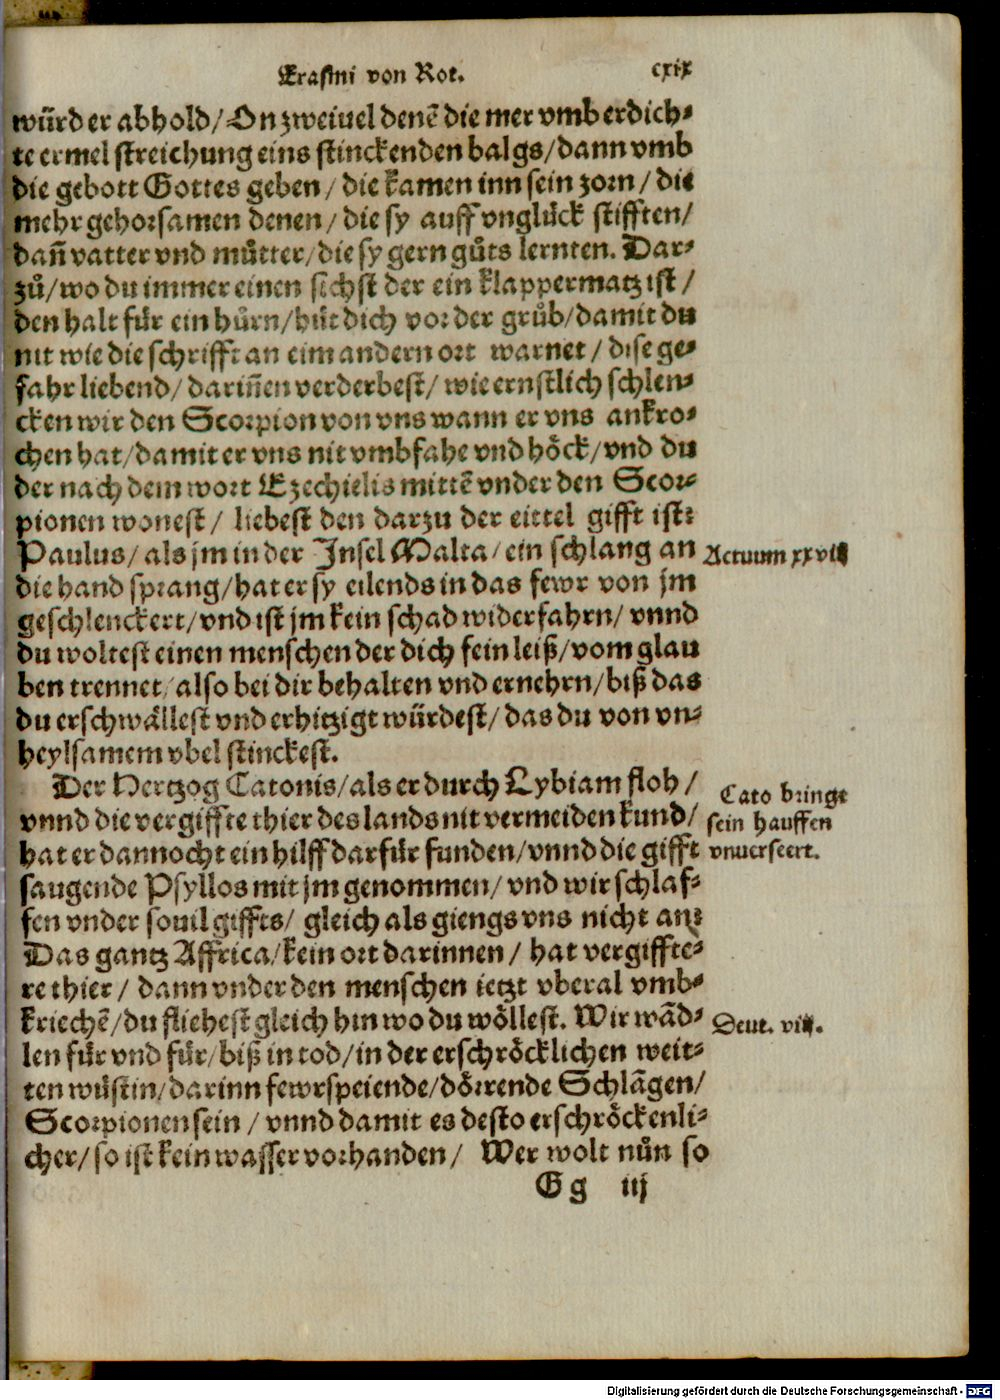 Erasmi von Rot. cxix
würd er abhold/ On zweiuel denē die mer vmb erdich⸗
te ermel streichung eins stinckenden balgs/ dann vmb
die gebott Gottes geben/ die kamen inn sein zorn/ die
mehr gehorsamen denen/ die sy auff vnglück stifften/
dañ vatter vnd můtter/ die sy gern gůts lernten. Dar⸗
zů/ wo du immer einen sichst der ein klappermatz ist/
den halt für ein hůrn/ hüt dich vor der grůb/ damit du
nit wie die schrifft an eim andern ort warnet/ dise ge⸗
fahr liebend/ dariñen verderbest/ wie ernstlich schlen⸗
cken wir den Scorpion von vns wann er vns ankro⸗
chen hat/ damit er vns nit vmbfahe vnd höck/ vnd du
der nach dem wort Ezechielis mittē vnder den Scor⸗
pionen wonest/ liebest den darzu der eittel gifft ist?
Paulus/ als jm in der Insel Malta/ ein schlang an
Actuum xxviij
die hand sprang/ hat er sy eilends in das fewr von jm
geschlenckert/ vnd ist jm kein schad widerfahrn/ vnnd
du woltest einen menschen der dich fein leiß/ vom glau
ben trennet/ also bei dir behalten vnd ernehrn/ biß das
du erschwällest vnd erhitzigt würdest/ das du von vn⸗
heylsamem vbel stinckest.
Der Hertzog Catonis/ als er durch Lybiam floh/
vnnd die vergiffte thier des lands nit vermeiden kund/
hat er dannocht ein hilff darfür funden/ vnnd die gifft
saugende Psyllos mit jm genommen/ vnd wir schlaf⸗
Cato bringt
sein hauffen
vnuerseert.
fen vnder souil giffts/ gleich als giengs vns nicht an?
Das gantz Affrica/ kein ort darinnen/ hat vergiffte⸗
re thier/ dann vnder den menschen ietzt vberal vmb⸗
kriechē/ du fliehest gleich hin wo du wöllest. Wir wād⸗
Deut. viij.
len für vnd für/ biß in tod/ in der erschröcklichen weit⸗
ten wüstin/ darinn fewrspeiende/ dörrende Schlāgen/
Scorpionen sein/ vnnd damit es desto erschröckenli⸗
cher/ so ist kein wasser vorhanden/ Wer wolt nůn so
Gg iij
Digitalisierung gefördert durch die Deutsche Forschungsgemeinschaft - DFG